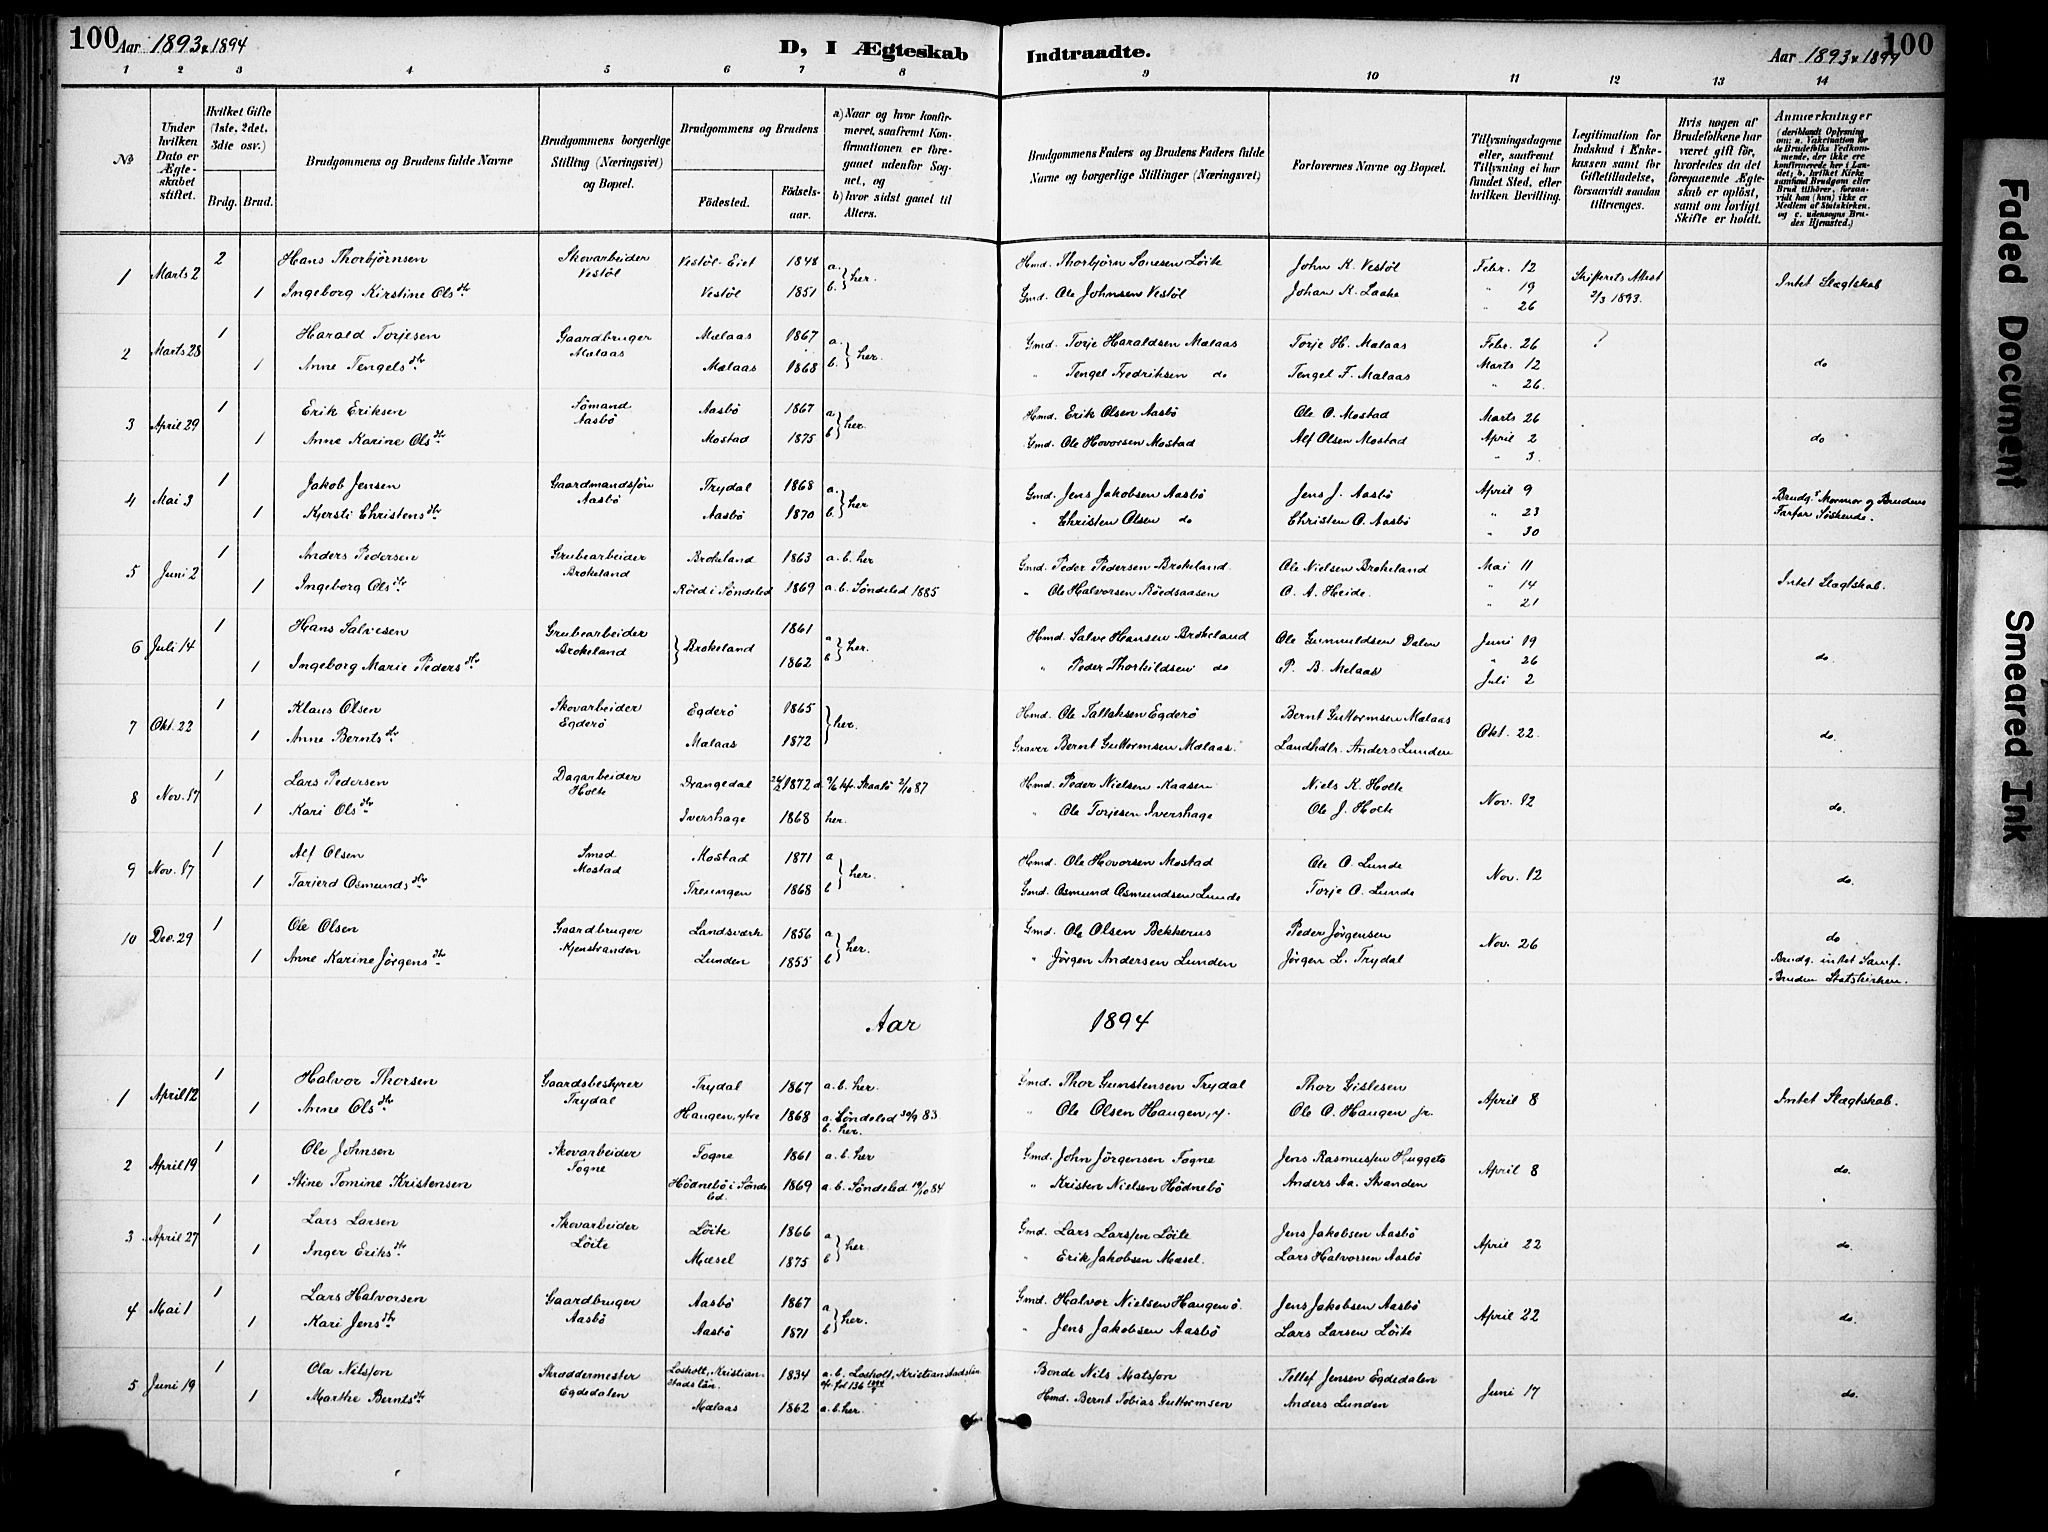 100 Aar 1893 & 1894
D, I Ægteskab Indtraadte.
Aar 1893 & 1894 100
1 2 3 4 5 6 7 8 9 10 11 12 13 14
No
Under hvilken Dato er Ægteskabet stiftet.
Hvilket Gifte (1ste, 2det, 3die osv.)
Brdg. Brud.
Brudgommens og Brudens fulde Navne
Brudgommens borgerlige Stilling (Næringsvei) og Bopæl.
Brudgommens og Brudens
Fødested. Fødselsaar.
a) Naar og hvor konfirmeret, saafremt Konfirmationen er foregaaet udenfor Sognet, og
b) hvor sidst gaaet til Alters.
Brudgommens Faders og Brudens Faders fulde Navne og borgerlige Stillinger (Næringsvei)
Forlovernes Navne og Bopæl.
Tillysningsdagene eller, saafremt Tillysning ei har fundet Sted, efter hvilken Bevilling.
Legitimation for Indskud i Enkekassen samt for Giftetilladelse, forsaavidt saadan tiltrænges.
Hvis nogen af Brudefolkene har været gift før, hvorledes da det foregaaende Ægteskab er opløst, samt om lovligt Skifte er holdt.
Anmærkninger
(deriblandt Oplysning om: a. Vakcination for de Brudefolks Vedkommende, der ikke ere konfirmerede her i Landet; b. hvilket Kirkesamfund Brudgom eller Brud tilhører, forsaavidt han (hun) ikke er Medlem af Statskirken, og c. udensogns Brudes Hjemsted.)
1 Marts 2 2 Hans Thorbjørnsen Skovarbeider Vestøl Vestøl-Eiet 1848 a. b. } her. Hmd. Thorbjørn Sonesen Løite John K. Vestøl Febr. 12 Skifterets Attest 2/3 1893. Intet Slægtskab
1 Ingeborg Kirstine Olsdtr Vestøl 1851 Gmd. Ole Johnsen Vestøl Johan K. Laake " 19
" 26
2 Marts 28 1 Harald Torjesen Gaardbruger Mælaas Mælaas 1867 a. b. } her. Gmd. Torje Haraldsen Mælaas Torje H. Mælaas Febr. 26 ? do
1 Anne Tengelsdtr Mælaas 1868 " Tengel Fredriksen do Tengel F. Mælaas Marts 12
" 26.
3 April 29 1 Erik Eriksen Sømand Aasbø Aasbø 1867 a b } her. Hmd. Erik Olsen Aasbø Ole O. Mostad Marts 26 do
1 Anne Karine Olsdtr Mostad 1875 Gmd. Ole Hovorsen Mostad Alf Olsen Mostad April 2
" 3.
4 Mai 3 1 Jakob Jensen Gaardmandssøn Aasbø Trydal 1868 a. b. } her Gmd. Jens Jakobsen Aasbø Jens J. Aasbø April 9 Brudg.s Mormor og Brudens Farfar Søskende.
1 Kjersti Christensdtr Aasbø 1870 " Christen Olsen do Christen O. Aasbø " 23
" 30
5 Juni 2 1 Anders Pedersen Grubearbeider Brokeland Brokeland 1863 a. b. her Gmd. Peder Pedersen Brokeland. Ole Nielsen Brokeland Mai 11 Intet Slægtskab.
1 Ingeborg Olsdtr Röed i Søndeled 1869 a. b. Søndeled 1885 " Ole Halvorsen Röedsaasen O. A. Heide. " 14
" 21
6 Juli 14 1 Hans Salvesen Grubearbeider Brokeland } Brokeland 1861 a b } her. Hmd. Salve Hansen Brokeland Ole Gunnuldsen Dalen Juni 19 do.
1 Ingeborg Marie Pedersdtr 1862 " Peder Thorkildsen do P. B. Mælaas " 26
Juli 2
7 Okt. 22 1 Klaus Olsen Skovarbeider Egderø Egderø 1865 } her. Hmd. Ole Tallaksen Egderø Bernt Guttormsen Mælaas Okt. 22. do.
1 Anne Berntsdtr Mælaas 1872 Graver Bernt Guttormsen Mælaas. Landhdlr. Anders Lunden
8 Nov. 17 1 Lars Pedersen Dagarbeider Holte Drangedal 1872 Skaatø 2/10 87 Hmd. Peder Nielsen Kaasen Niels K. Holte Nov. 12 do.
1 Kari Olsdtr Ivershage 1868 her. " Ole Torjesen Ivershage Ole J. Holte
9 Nov. 17 1 Alf Olsen Smed Mostad Mostad 1871 a b } her. Hmd. Ole Hovorsen Mostad Ole O. Lunde Nov. 12 do.
1 Tarjerd Osmundsdtr Treungen 1868 Gmd. Osmund Osmundsen Lunde Torje O. Lunde
10 Dec. 29 1 Ole Olsen Gaardbruger Kjenstranden Landsværk 1856 a b } her. Gmd. Ole Olsen Bekkerus Peder Jørgensen Nov. 26 do
1 Anne Karine Jørgensdtr Lunden 1855 " Jørgen Andersen Lunden Jørgen L. Trydal Brudg. intet Samf.
Bruden Statskirken.
Aar 1894
1 April 12 1 Halvor Thorsen Gaardsbestyrer Trydal Trydal 1867 a. b. her. Gmd. Thor Gunstensen Trydal Thor Gislesen April 8 Intet Slægtskab.
1 Anne Olsdtr Haugen, ytre 1868 a. Søndeled 30/9 83. b. her. " Ole Olsen Haugen, y. Ole O. Haugen jr.
2 April 19 1 Ole Johnsen Skovarbeider Fogne Fogne 1861 a. b. her Gmd. John Jörgensen Fogne Jens Rasmussen Huggets April 8 do.
1 Stine Tomine Kristensen Hødnebø i Søndeled. 1869 a. b. Søndeled 19/10 84 " Kristen Nielsen Hødnebø Anders Aa. Stranden
3 April 27 1 Lars Larsen Skovarbeider Løite Løite 1866 a b } her Gmd. Lars Larssen Løite Jens Jakobsen Aasbø April 22 do.
1 Inger Eriksdtr Mæsel 1875 " Erik Jakobsen Mæsel. Lars Halvorsen Aasbø
4 Mai 1 1 Lars Halvorsen Gaardbruger Aasbø Aasbø 1867 a b } her. Gmd. Halvor Nielsen Haugen ø. Jens Jakobsen Aasbø April 22 do.
1 Kari Jensdtr Aasbø 1871 " Jens Jakobsen Aasbø Lars Larsen Løite
5 Juni 19 1 Ola Nilsson Skræddermester Egdedalen Losholt, Kristianstadslän 1834 a. b. Losholt, Kristianstadslän cfr. fol 136 Bonde Nils Matsson Tellef Jensen Egdedalen Juni 17 do.
1 Marthe Berntsdtr Mælaas 1862 a. b. her Hmd. Bernt Tobias Guttormsen Anders Lunden
Faded Document
Smeared Ink